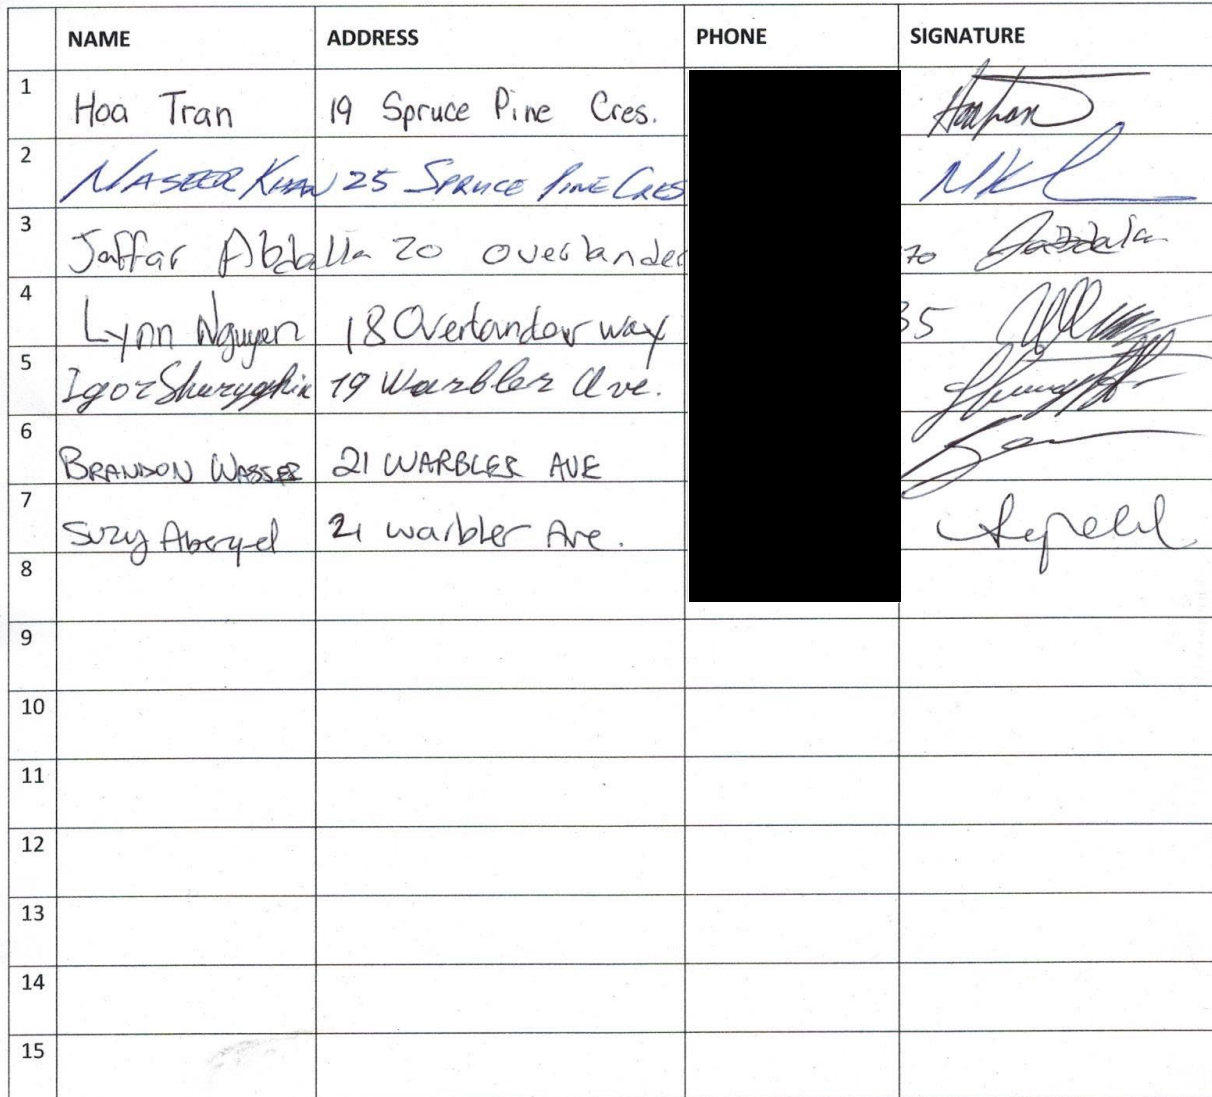 NAME ADDRESS PHONE SIGNATURE
1 Hoa Tran 19 Spruce Pine Cres.
2 NASEER KHAN 25 SPRUCE PINE CRES
3 Jaffar Abdalla 20 overlander 70
4 Lynn Nguyen 18 Overlander way 35
5 Igor Shuryghin 19 Warbler Ave.
6 BRANDON WASSER 21 WARBLER AVE
7 Suzy Abergel 21 warbler Ave.
8
9
10
11
12
13
14
15